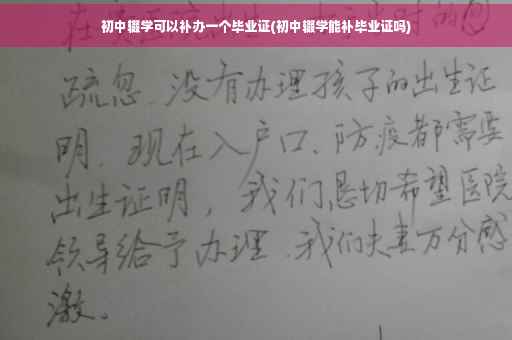 初中辍学可以补办一个毕业证(初中辍学能补毕业证吗)
疏忽、没有办理孩子的出生证
明、现在入户口、防疫都需要
出生证明，我们恳切希望医院
领导给予办理、我们夫妻万分感
激。